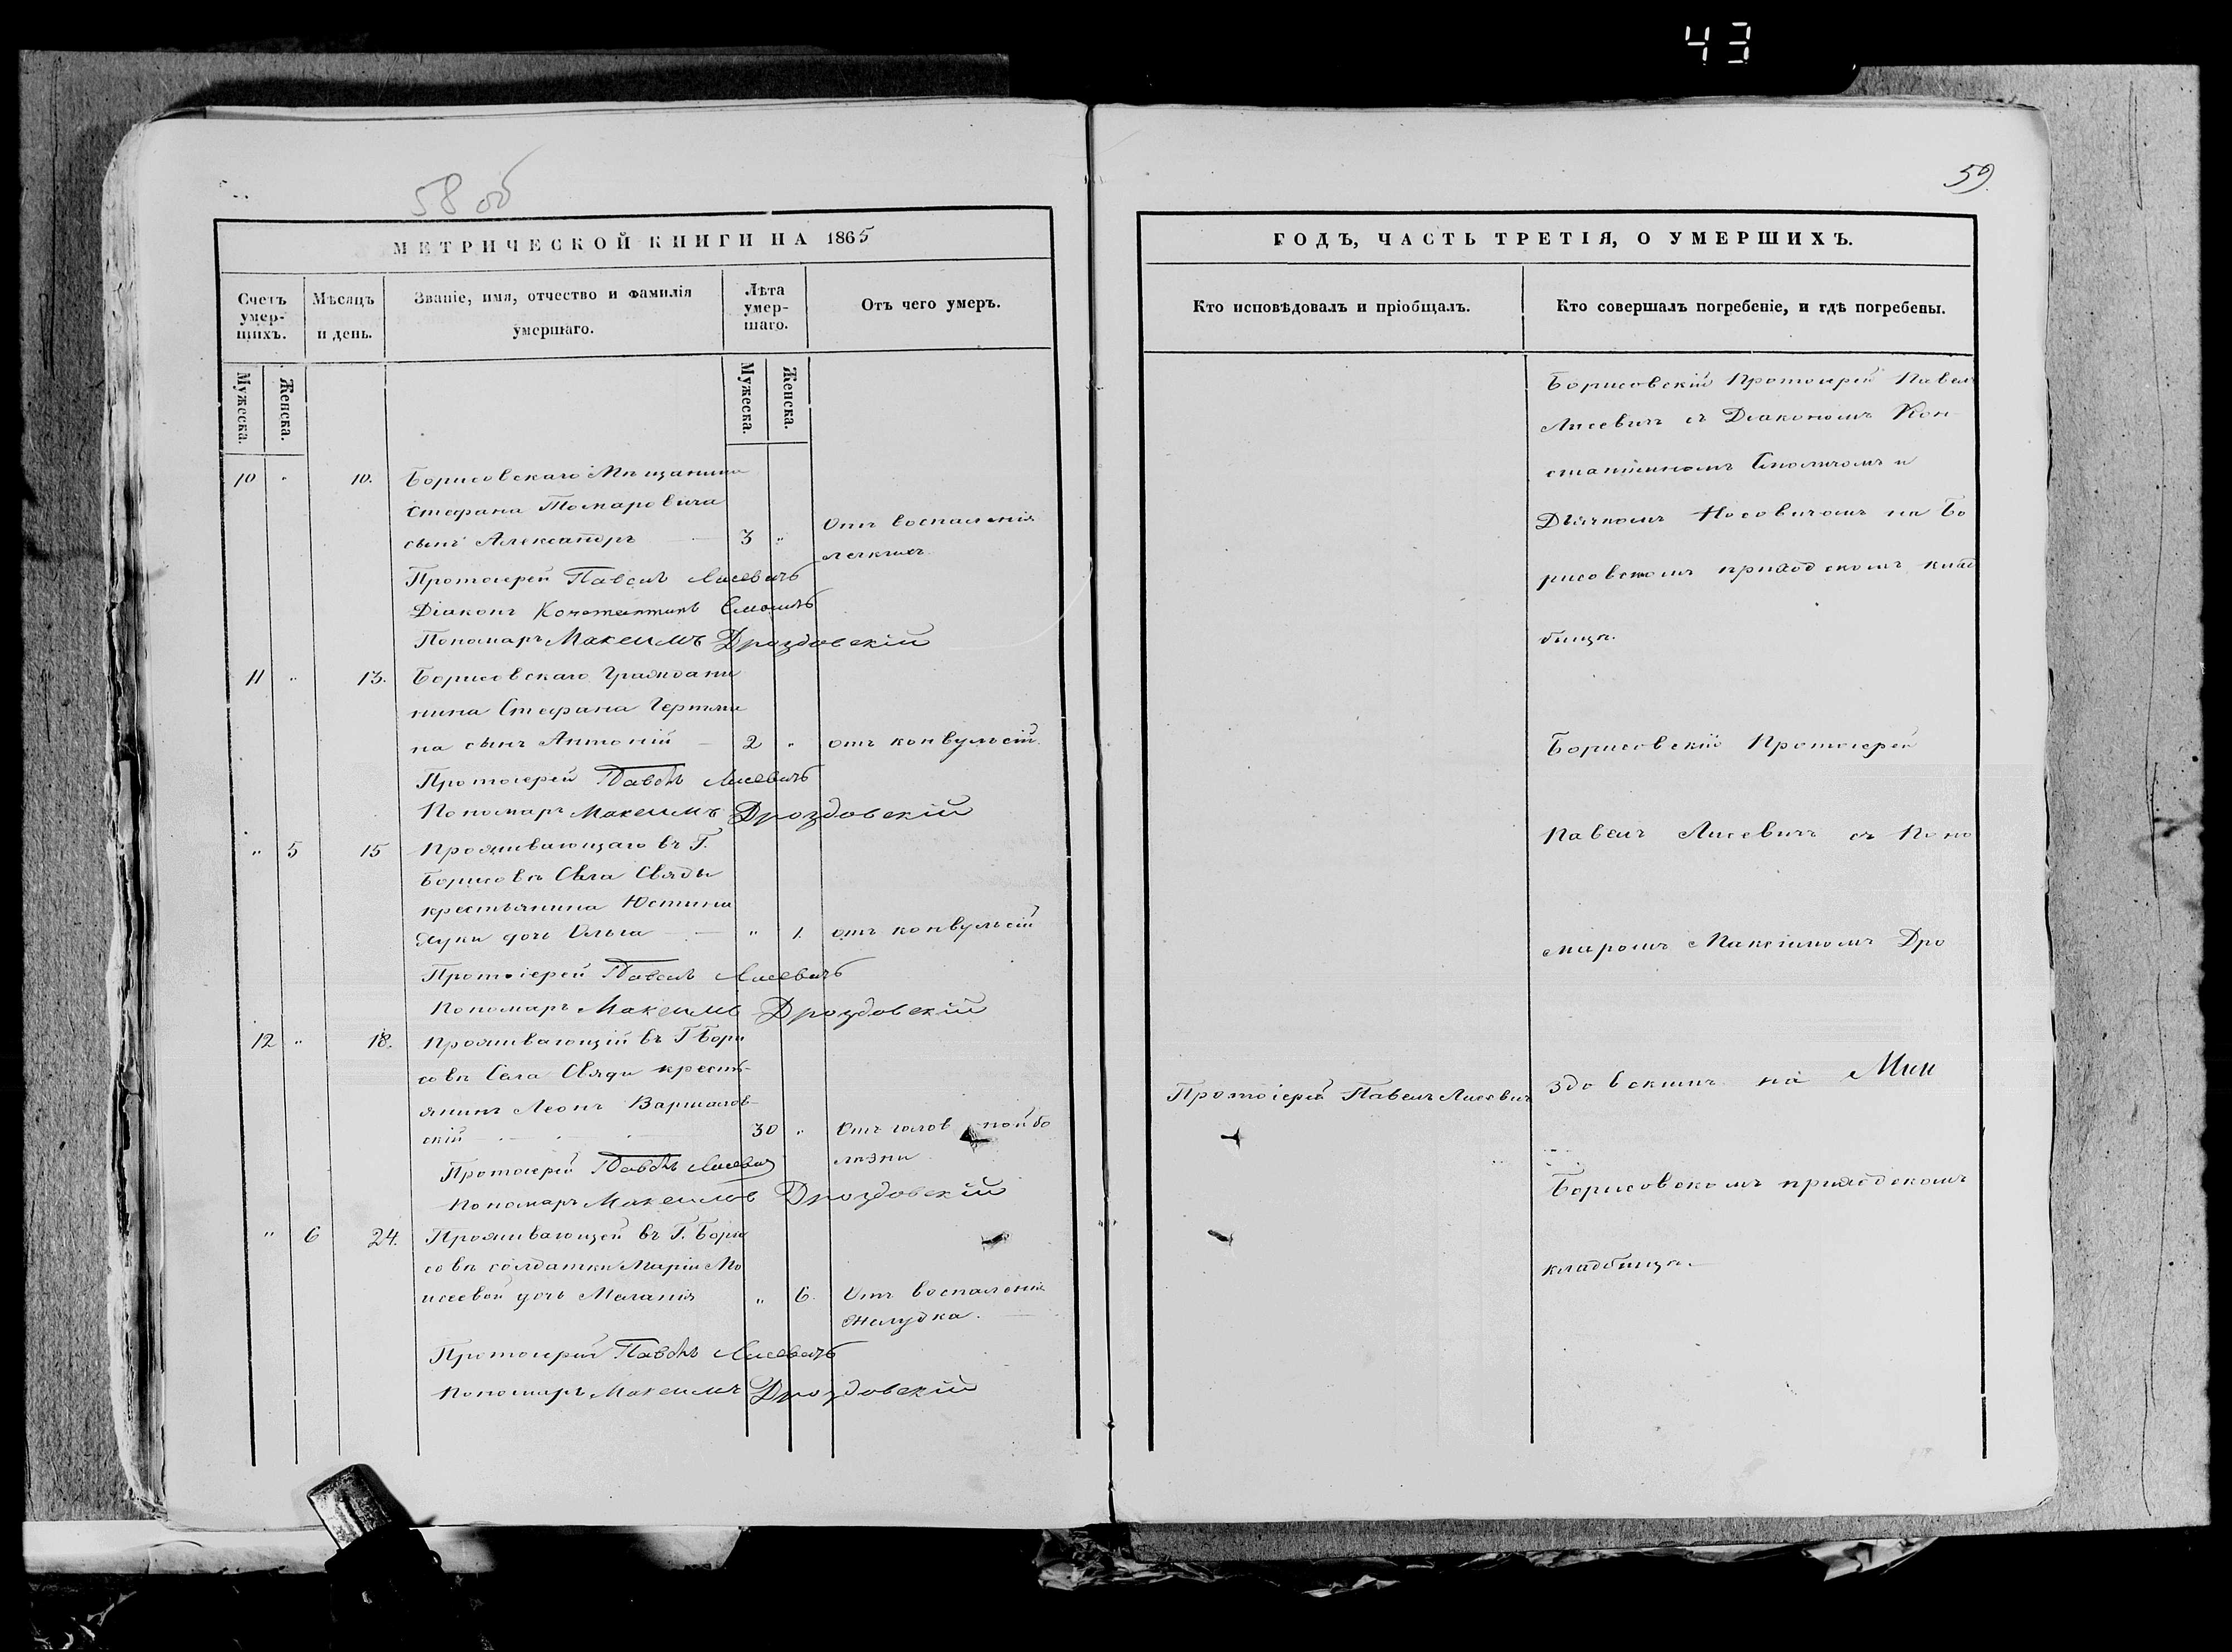 43
58 об
МЕТРИЧЕСКОЙ КНИГИ НА 1865
Счетъ умер-шихъ.
Мѣсяцъ и день.
Званіе, имя, отчество и фамилія умершаго.
Лѣта умер-шаго.
Отъ чего умеръ.
Мужеска.
Женска.
Мужеска.
Женска.
10 " 10. Борисовскаго Мѣщанина
Стефана Токаровича
сынъ Александръ — 3 " Отъ воспаленія
легкихъ.
Протоіерей Павелъ Лисевичъ
Діаконъ Константинъ Смоличъ
Пономаръ Максимъ Дроздовскій
11 " 13. Борисовскаго Граждани
нина Стефана
на сынъ Антоній — 2 " отъ конвульсій.
Протоіерей Павелъ Лисевичъ
Пономаръ Максимъ Дроздовскій
" 5 15 Проживающаго въ Г.
Борисовѣ Села Свяды
крестьянина Юстина
дочь Ольга — " 1. отъ конвульсій
Протоіерей Павелъ Лисевичъ
Пономаръ Максимъ Дроздовскій
12 " 18. Проживающій въ Г. Бори
совѣ Села Свяды кресть-
янинъ Леонъ Варшалов-
скій — 30 " Отъ голов ной бо
лѣзни
Протоіерей Павелъ Лисевич
Пономаръ Максимъ Дроздовскій
" 6 24. Проживающей въ Г. Бори
совѣ солдатки Маріи Мо
исеевой дочь Меланія " 6. Отъ воспаленія
желудка.
Протоіерей Павелъ Лисевичъ
Пономаръ Максимъ Дроздовскій
59.
ГОДЪ, ЧАСТЬ ТРЕТІЯ, О УМЕРШИХЪ.
Кто исповѣдовалъ и пріобщалъ.
Кто совершалъ погребеніе, и гдѣ погребены.
Борисовскій Протоіерей Павелъ
Лисевичъ съ Діакономъ Кон
стантиномъ Смоличомъ и
Дьячкомъ Носовичомъ на Бо
рисовскомъ приходскомъ клад
бищѣ.
Борисовскій Протоіерей
Павелъ Лисевичъ съ Поно
маромъ Максимомъ Дро
Протоіерей Павелъ Лисевичъ
здовскимъ на
Борисовскомъ приходскомъ
кладбищѣ.